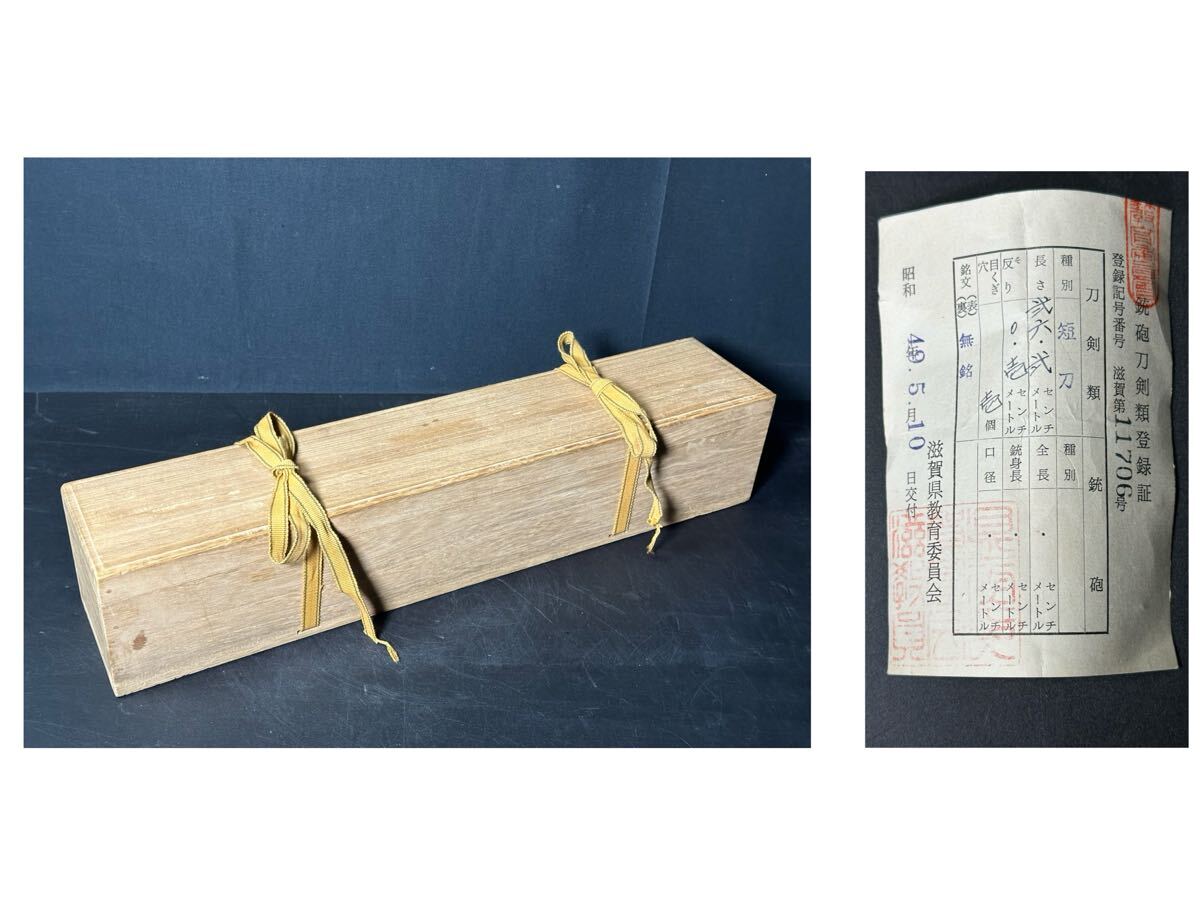 銃砲刀剣類登録証
登録記号番号 滋賀第11706号
刀剣類
銃砲
種別 短刀
種別
長さ 弐六・弐 センチメートル
全長 ・ センチメートル
反り 0・壱 センチメートル
銃身長 ・ センチメートル
目くぎ穴 壱個
口径 ・ センチメートル
銘文 (表) (裏) 無銘
滋賀県教育委員会
昭和 49年5月10日交付